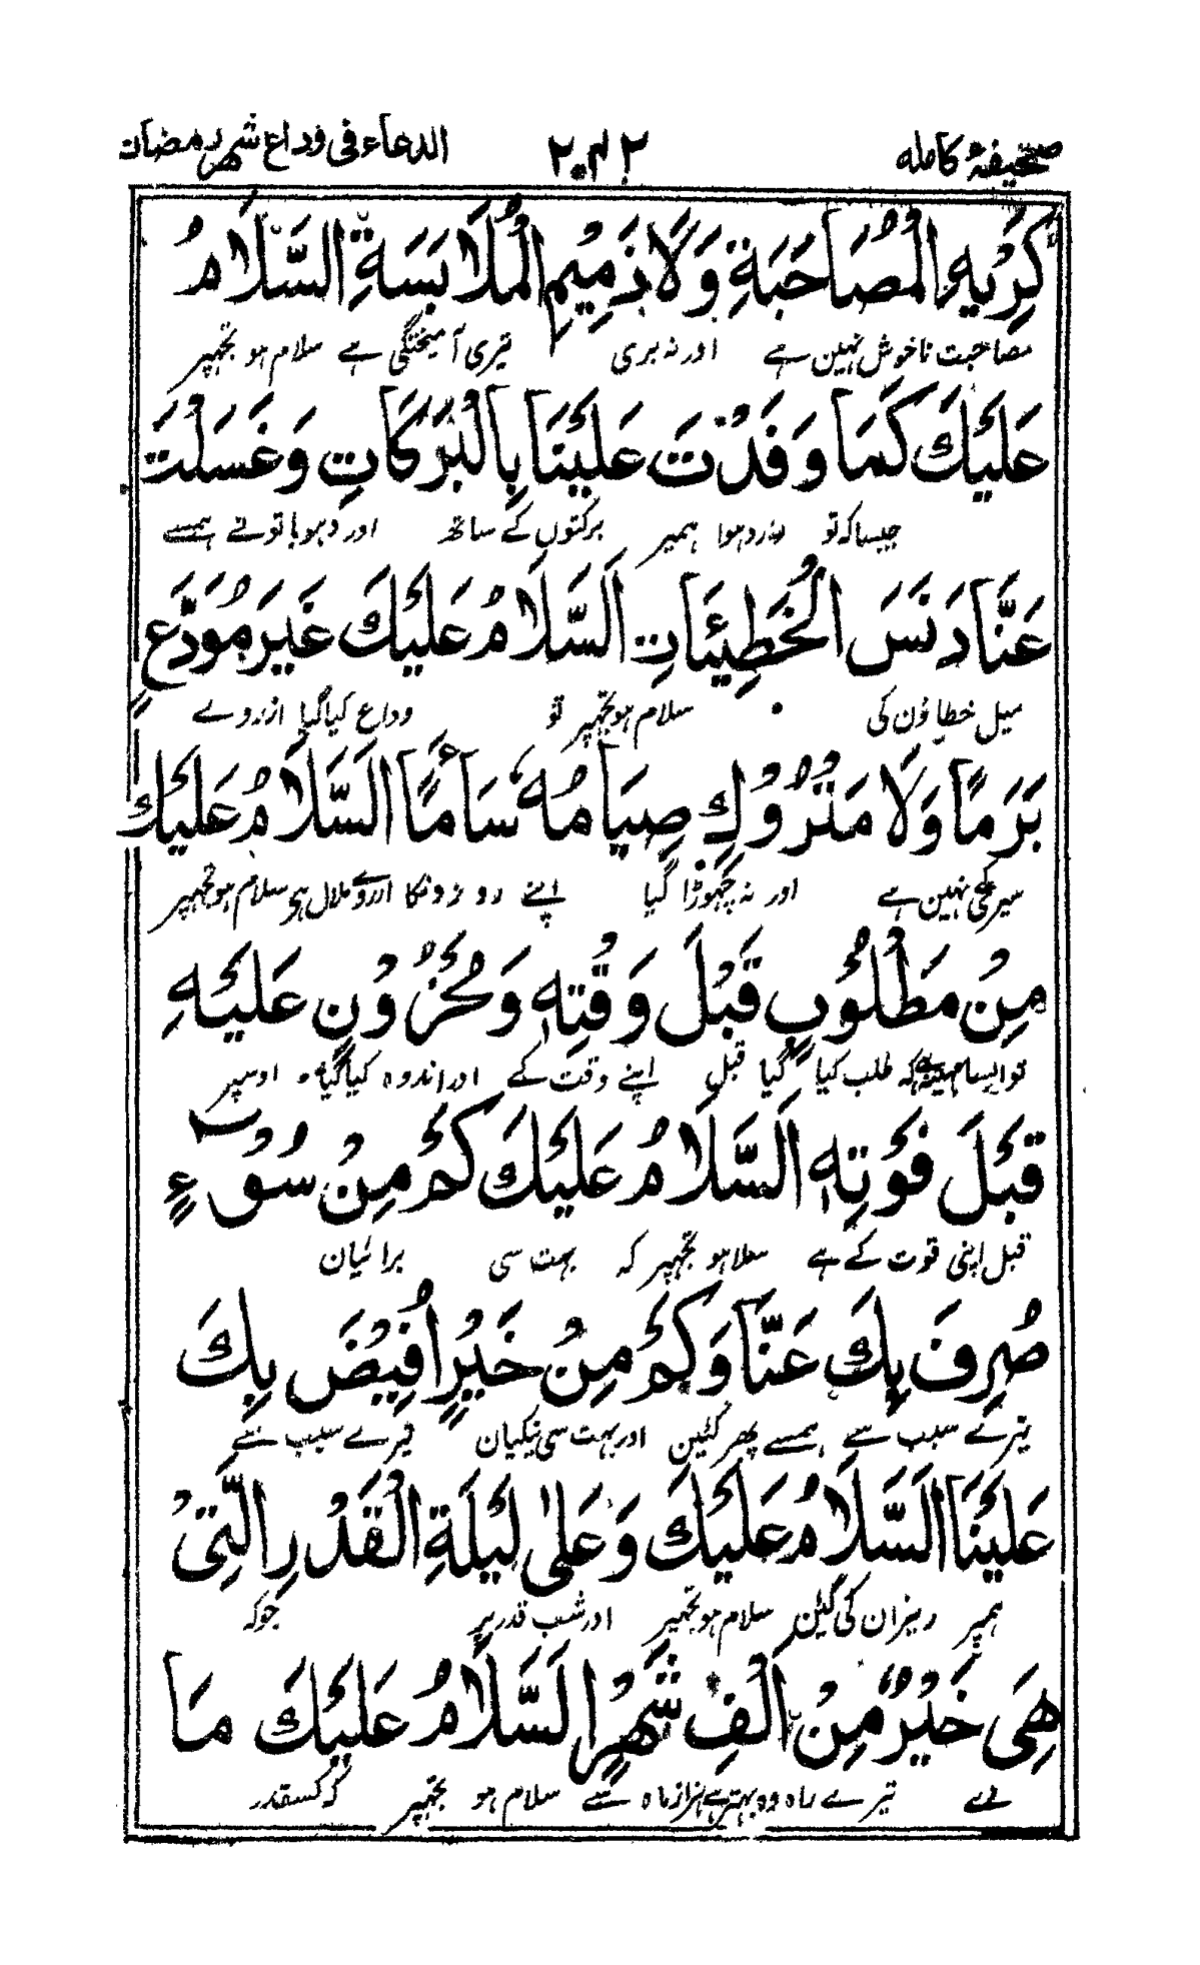 صحیفۂ کاملہ ۲۴۲ الدعاء فی وداع شھر رمضان
كَرِيهِ الْمُصَاحَبَةِ وَلَا ذَمِيمِ الْمُلَابَسَةِ السَّلَامُ
مصاحبت ناخوش نہین ہے اور نہ بری تیری آمیختگی ہے سلام ہو تجھپر
عَلَيْكَ كَمَا وَفَدْتَ عَلَيْنَا بِالْبَرَكَاتِ وَغَسَلْتَ
جیساکہ تو وارد ہوا ہمپر برکتوں کے ساتھ اور دہویا تونے ہمسے
عَنَّا دَنَسَ الْخَطِيئَاتِ اَلسَّلَامُ عَلَيْكَ غَيْرَ مُوَدَّعٍ
میل خطاؤن کی سلام ہو تجھپر تو وداع کیا گیا ازروے
بَرَمًا وَلَا مَتْرُوكٍ صِيَامُهُ سَأَمًا اَلسَّلَامُ عَلَيْكَ
سیرگی نہین ہے اور نہ چھوڑا گیا اپنے روزونکا ازروے ملال ہی سلام ہو تجھپر
مِنْ مَطْلُوبٍ قَبْلَ وَقْتِهٖ وَمَحْزُوْنٍ عَلَيْهِ
تو ایسا مہینہ ہے کہ طلب کیا گیا قبل اپنے وقت کے اور اندوہ کیا گیا اوسپر
قَبْلَ فَوْتِهٖ اَلسَّلَامُ عَلَيْكَ كَمْ مِنْ سُوْءٍ
قبل اپنی فوت کے ہے سلام ہو تجھپر کہ بہت سی برائیان
صُرِفَ بِكَ عَنَّا وَكَمْ مِنْ خَيْرٍ اُفِيْضَ بِكَ
تیرے سبب سے ہمسے پھر گئین اور بہت سی نیکیان تیرے سبب سے
عَلَيْنَا اَلسَّلَامُ عَلَيْكَ وَعَلٰى لَيْلَةِ الْقَدْرِ الَّتِيْ
ہمپر ریزان کی گئین سلام ہو تجھپر اور شب قدر پر جوکہ
هِيَ خَيْرٌ مِنْ اَلْفِ شَهْرٍ اَلسَّلَامُ عَلَيْكَ مَا
تیرے ماہ وہ بہتر ہے ہزار ماہ سے سلام ہو تجھپر کہ کسقدر